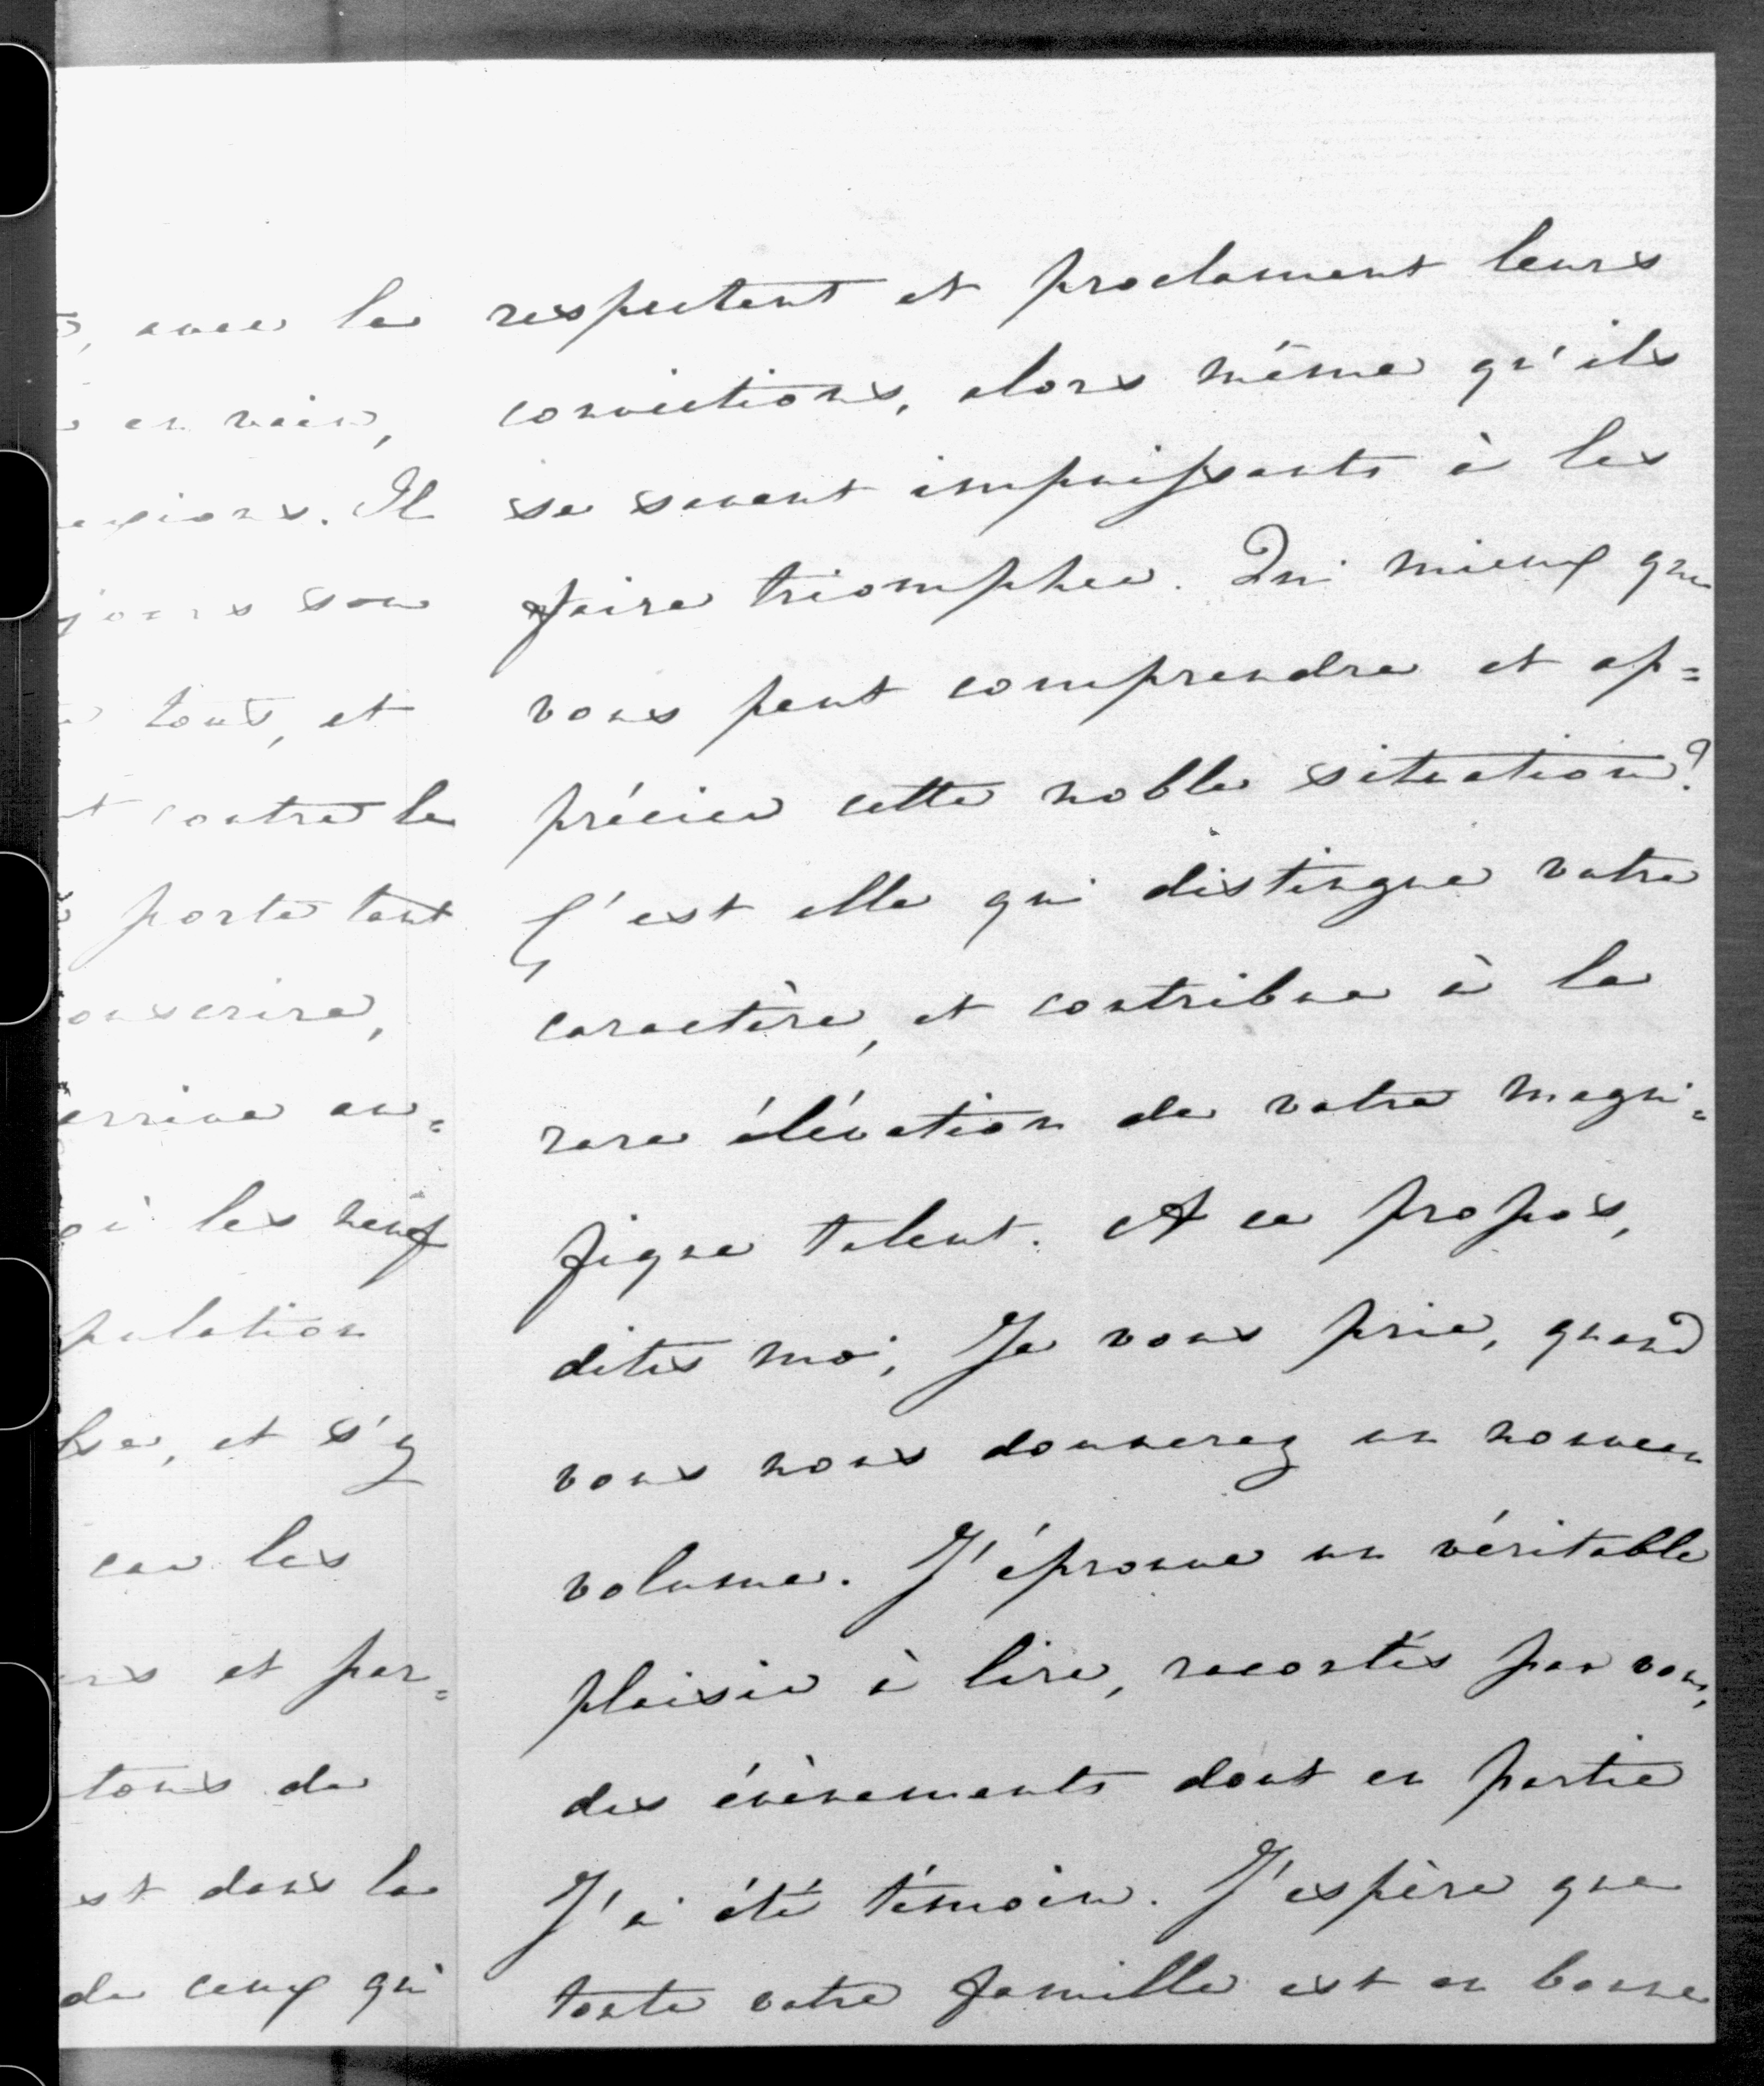 avec le
en vain,
Il
jours son
tout, et
contre le
porte tant
onscrire,
arrive en=
les neuf
pulation
et s'y
car les
et par=
tons de
est dans la
de ceux qui
respectent et proclament leurs
convictions, alors même qu'ils
se savent impuissants à les
faire triompher. Qui mieux que
vous peut comprendre et ap=
précier cette noble situation?
C'est elle qui distingue votre
caractère, et contribue à la
rare élévation de votre magni=
fique talent. A ce propos,
dites moi, Je vous prie, quand
vous nous donnerez un nouveau
volume. J'éprouve un véritable
plaisir à lire, racontés par vous,
des évènements dont en partie
J'ai été témoin. J'espère que
toute votre famille est en bonne